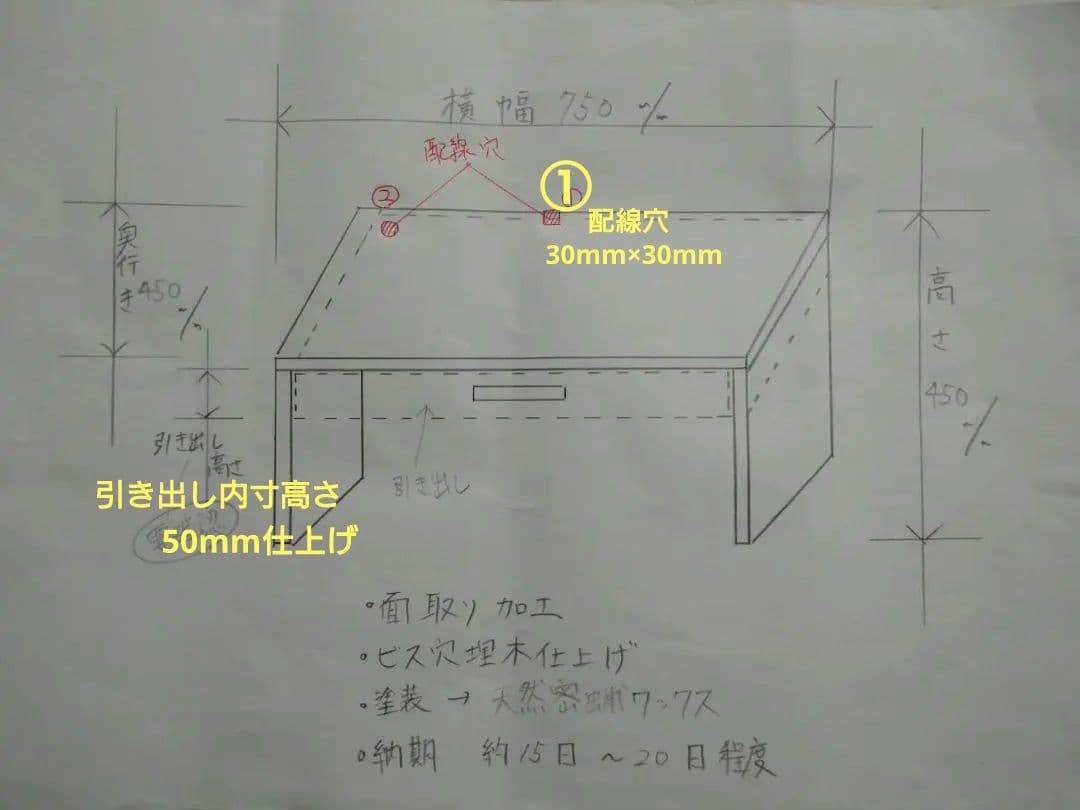 横幅 750 m/m
配線穴
②
①
①
配線穴
30mm×30mm
奥行き 450 m/m
高さ 450 m/m
引き出し
高さ
引き出し内寸高さ
50mm仕上げ
引き出し
・面取り加工
・ビス穴埋木仕上げ
・塗装 → 天然密蝋ワックス
・納期 約15日 ~20日程度